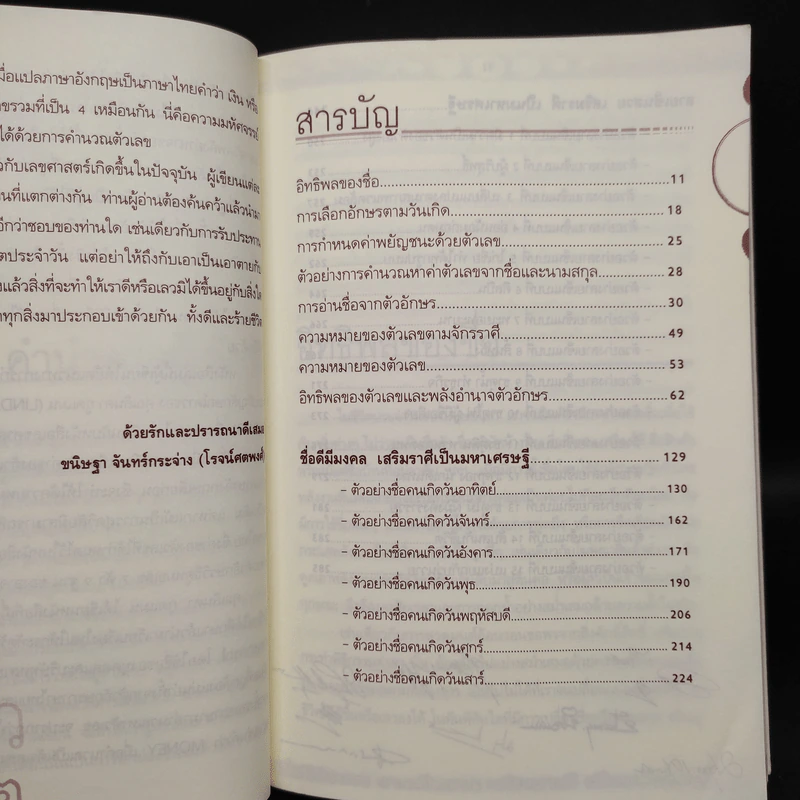 มื่อแปลภาษาอังกฤษเป็นภาษาไทยคำว่า เงิน หรือ
ขรวมที่เป็น 4 เหมือนกัน นี่คือความมหัศจรรย์
ได้ด้วยการคำนวณตัวเลข
วกับเลขศาสตร์เกิดขึ้นในปัจจุบัน ผู้เขียนแต่ละ
นที่แตกต่างกัน ท่านผู้อ่านต้องค้นคว้าแล้วนำมา
อีกว่าชอบของท่านใด เช่นเดียวกับการรับประทาน
ตประจำวัน แต่อย่าให้ถึงกับเอาเป็นเอาตายกับ
งแล้วสิ่งที่จะทำให้เราดีหรือเลวมิได้ขึ้นอยู่กับสิ่งใด
าทุกสิ่งมาประกอบเข้าด้วยกัน ทั้งดีและร้ายชีวิต
ด้วยรักและปรารถนาดีเสมอ
ขนิษฐา จันทร์กระจ่าง (โรจน์ศตพงศ์)
สารบัญ
อิทธิพลของชื่อ 11
การเลือกอักษรตามวันเกิด 18
การกำหนดค่าพยัญชนะด้วยตัวเลข 25
ตัวอย่างการคำนวณหาค่าตัวเลขจากชื่อและนามสกุล 28
การอ่านชื่อจากตัวอักษร 30
ความหมายของตัวเลขตามจักรราศี 49
ความหมายของตัวเลข 53
อิทธิพลของตัวเลขและพลังอำนาจตัวอักษร 62
ชื่อดีมีมงคล เสริมราศีเป็นมหาเศรษฐี 129
- ตัวอย่างชื่อคนเกิดวันอาทิตย์ 130
- ตัวอย่างชื่อคนเกิดวันจันทร์ 162
- ตัวอย่างชื่อคนเกิดวันอังคาร 171
- ตัวอย่างชื่อคนเกิดวันพุธ 190
- ตัวอย่างชื่อคนเกิดวันพฤหัสบดี 206
- ตัวอย่างชื่อคนเกิดวันศุกร์ 214
- ตัวอย่างชื่อคนเกิดวันเสาร์ 224